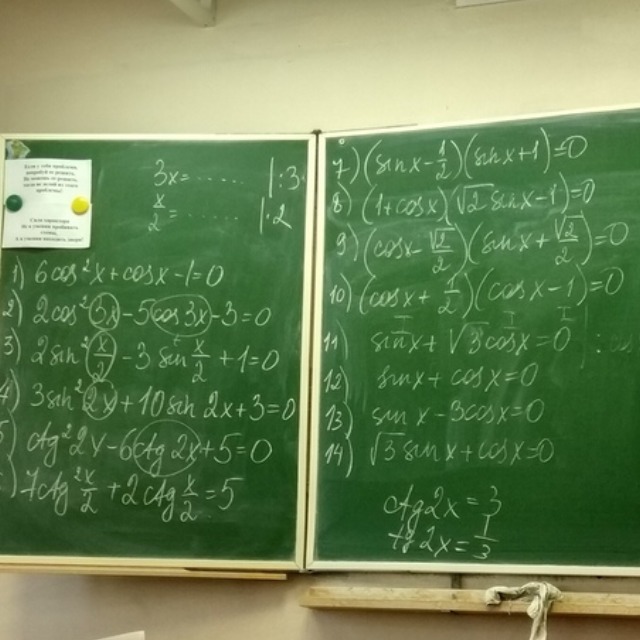 Если у тебя проблема,
попробуй ее решить.
Не можешь ее решить,
тогда не делай из этого
проблемы!
3x=....... |:3
x/2=....... |·2
1) 6cos²x+cosx-1=0
2) 2cos²3x-5cos3x-3=0
3) 2sin²x/2-3sin x/2+1=0
4) 3sin²2x+10sin2x+3=0
5) ctg²2x-6ctg2x+5=0
) 7ctg²x/2+2ctg x/2=5
7) (sinx-1/2)(sinx+1)=0
8) (1+cosx)(√2 sinx-1)=0
9) (cosx-√2/2)(sinx+√2/2)=0
10) (cosx+1/2)(cosx-1)=0
11) sinx+√3cosx=0
12) sinx+cosx=0
13) sinx-3cosx=0
14) √3sinx+cosx=0
ctg2x=3
tg2x=1/3